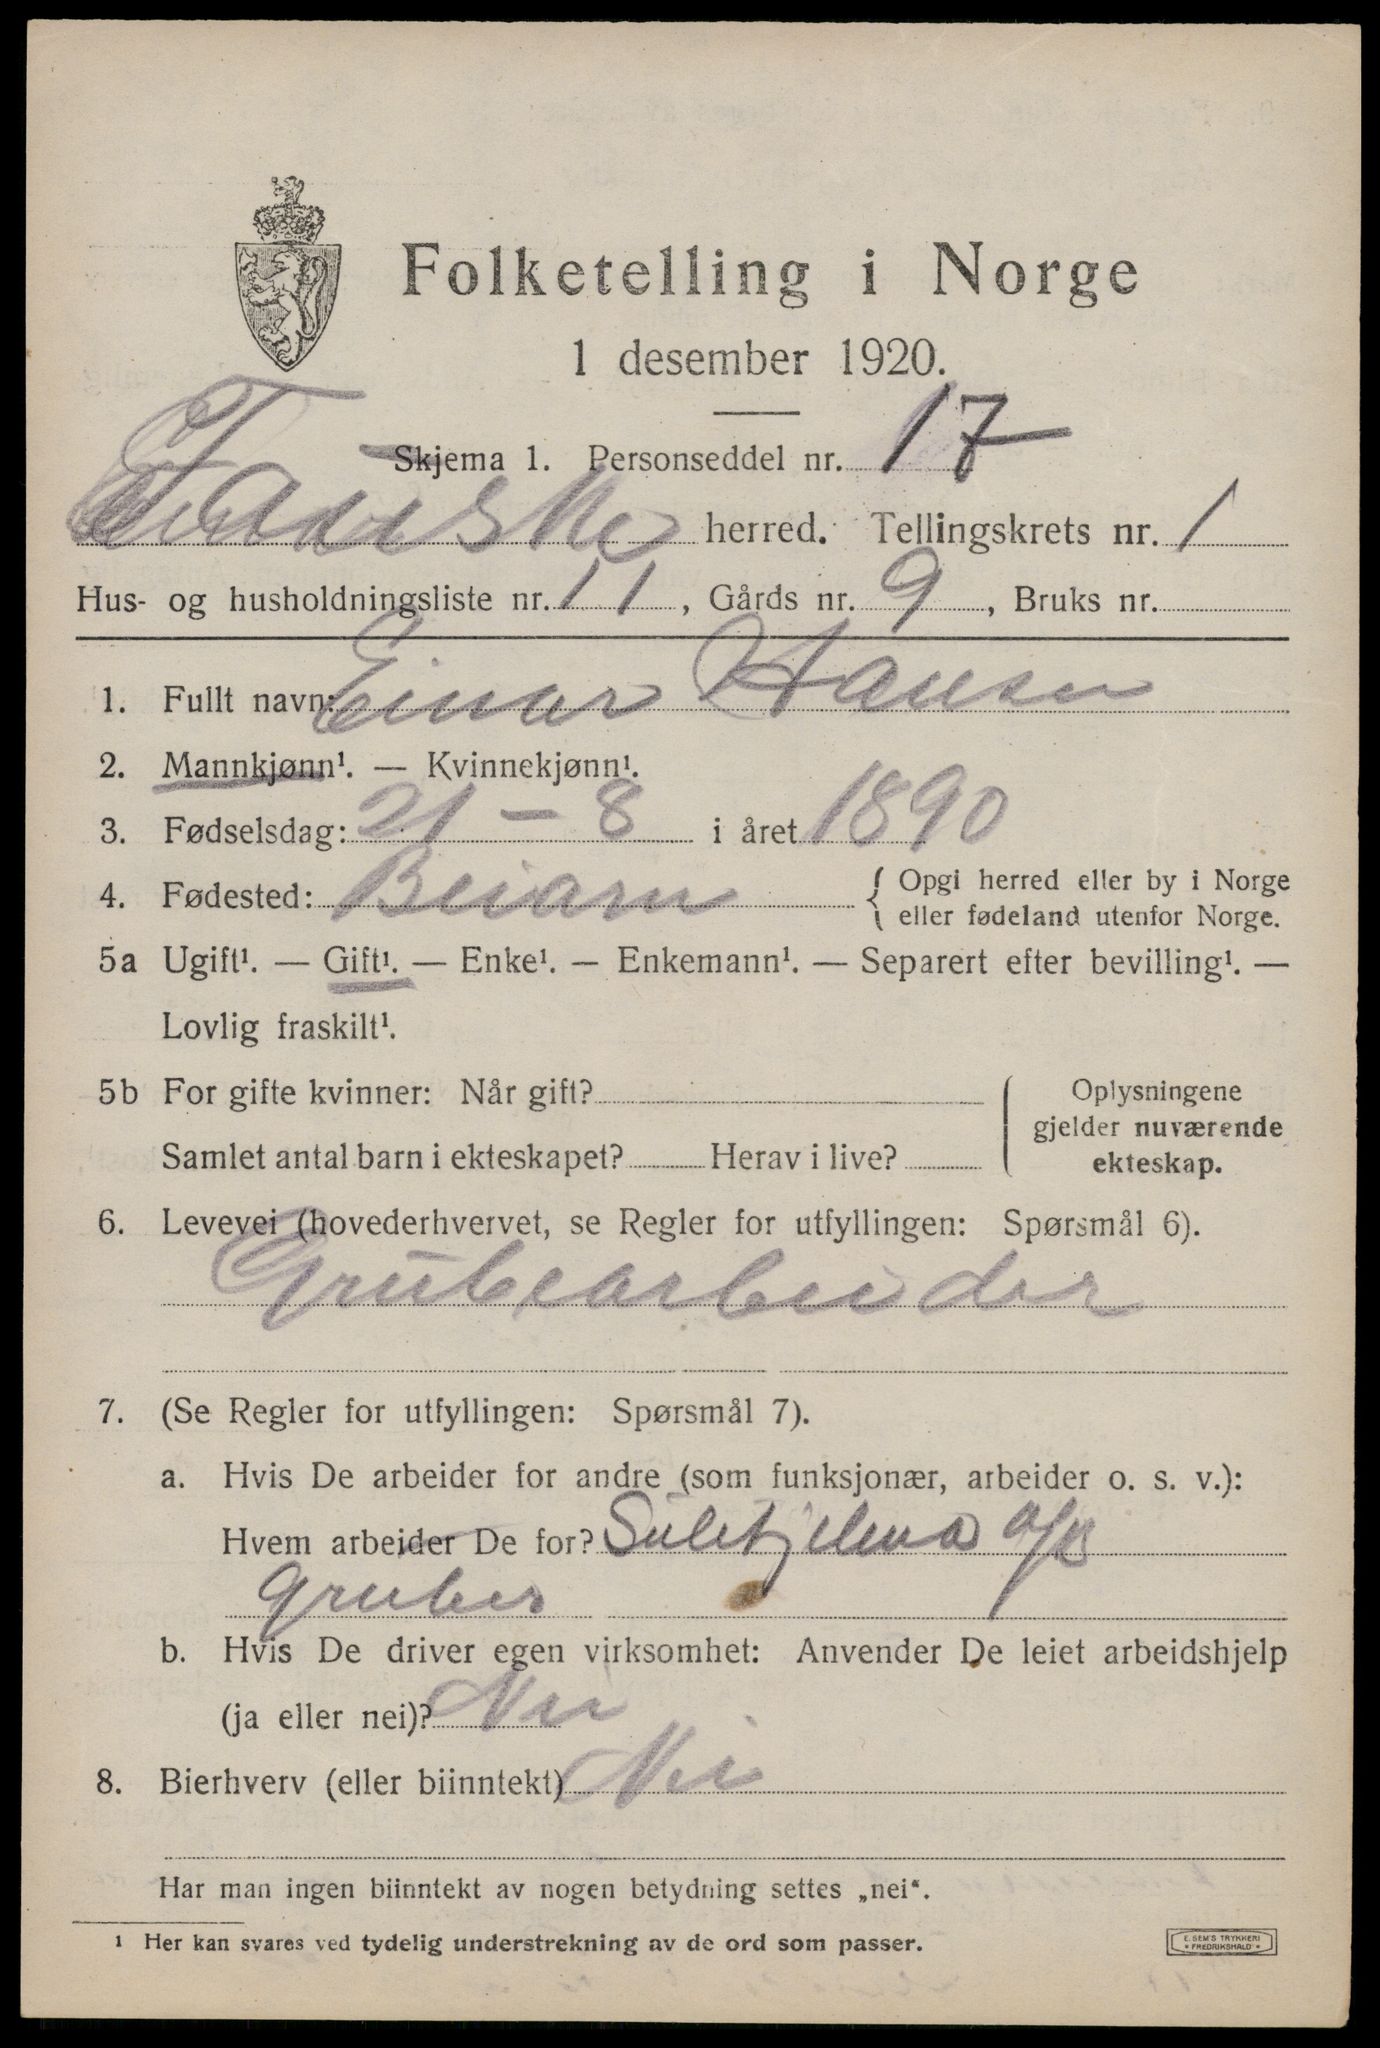 Folketelling i Norge
1 desember 1920.
Skjema 1. Personseddel nr. 17
Fauske herred. Tellingskrets nr. 1
Hus- og husholdningsliste nr. 11, Gårds nr. 9, Bruks nr.
1. Fullt navn: Einar Hansen
2. Mannkjønn¹. — Kvinnekjønn¹.
3. Fødselsdag: 21 - 8 i året 1890
4. Fødested: Beiarn { Opgi herred eller by i Norge
eller fødeland utenfor Norge.
5a Ugift¹. — Gift¹. — Enke¹. — Enkemann¹. — Separert efter bevilling¹. —
Lovlig fraskilt¹.
5b For gifte kvinner: Når gift?
Samlet antal barn i ekteskapet? Herav i live?
Oplysningene
gjelder nuværende
ekteskap.
6. Levevei (hovederhvervet, se Regler for utfyllingen: Spørsmål 6).
Grubearbeider
7. (Se Regler for utfyllingen: Spørsmål 7).
a. Hvis De arbeider for andre (som funksjonær, arbeider o. s. v.):
Hvem arbeider De for? Sulitjelma a/B
Gruber
b. Hvis De driver egen virksomhet: Anvender De leiet arbeidshjelp
(ja eller nei)? Nei
8. Bierhverv (eller biinntekt) Nei
Har man ingen biinntekt av nogen betydning settes „nei“.
¹ Her kan svares ved tydelig understrekning av de ord som passer.
E. SEM'S TRYKKERI
* FREDRIKSHALD *